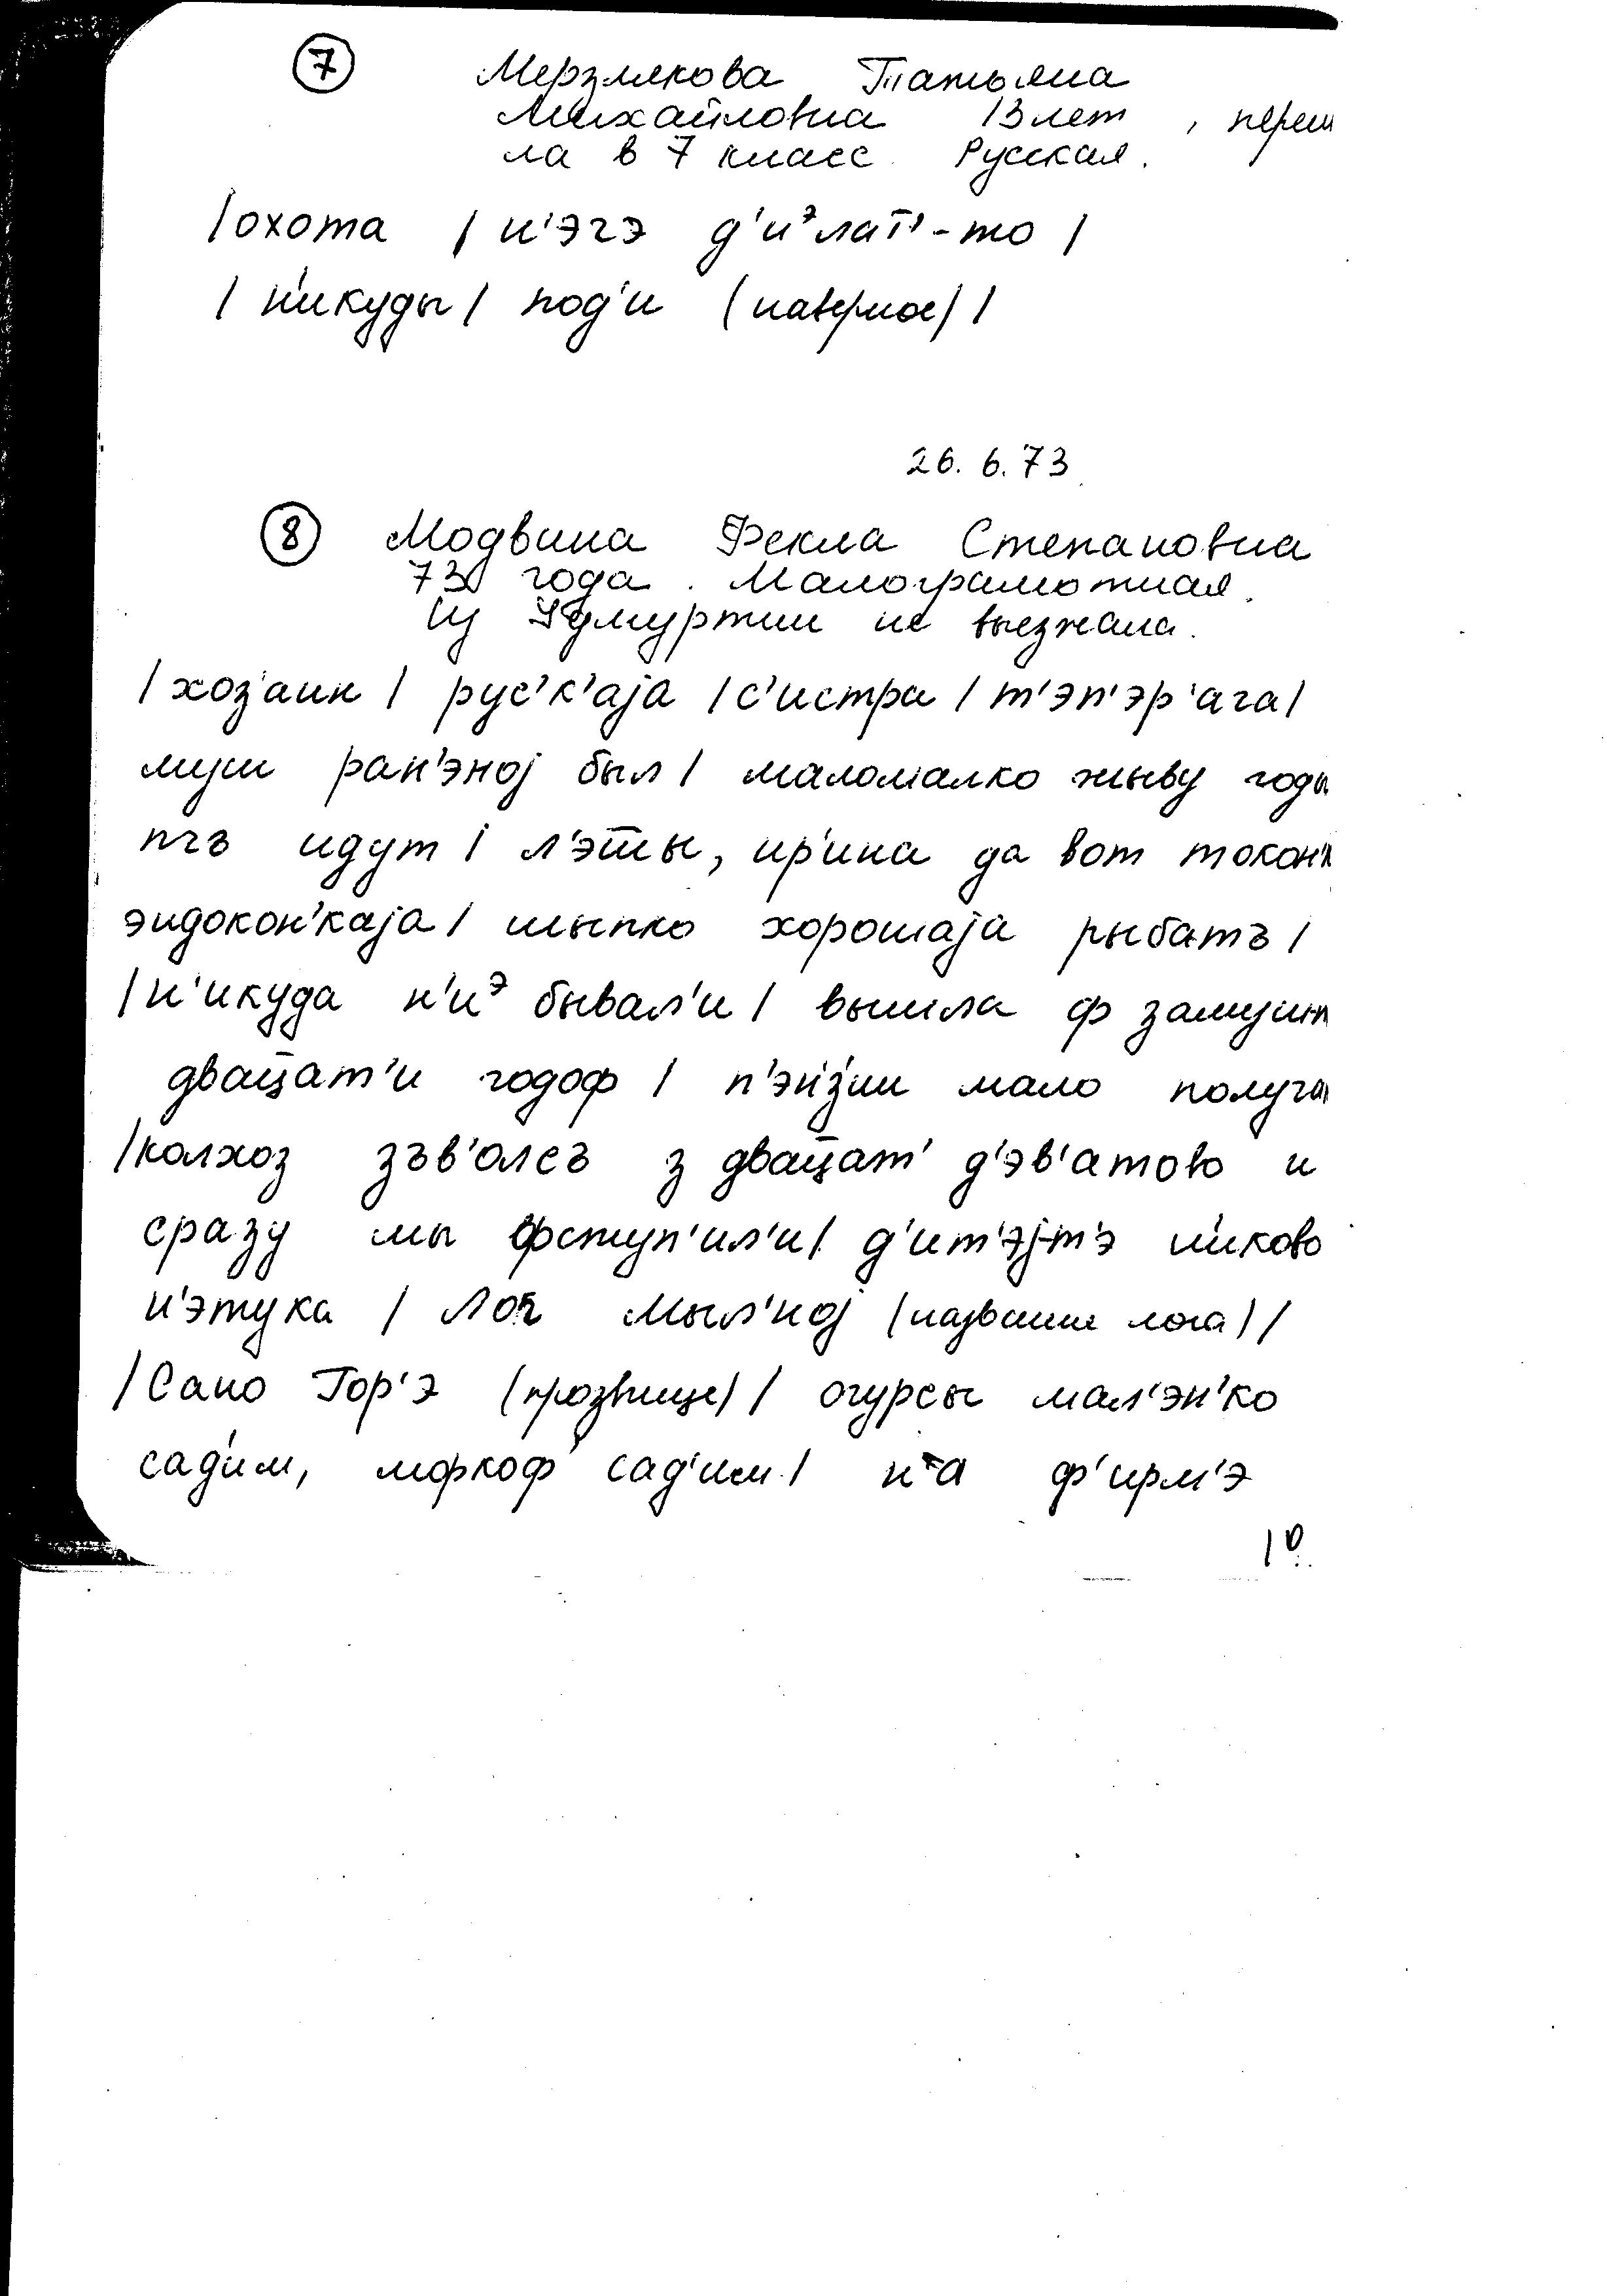 7 Мерзлякова Татьяна
Михайловна 13 лет, переш
ла в 7 класс. Русская.
/охота / н'эгэ д'иэлат'-то /
/ н'икуды / под'и (наверное) /
26.6.73
8 Модвина Фекла Степановна
73 года. Малограмотная.
Из Удмуртии не выезжала.
/ хоз'аин / рус'к'аjа / с'истра / т'эп'эр'ага /
муш ран'эноj был / маломалко жыву годы
идут / л'эты, ир'ина да вот
эндокон'каjа / шыпко хорошаjа рыбатъ /
/ н'икуда н'иэ бывал'и / вышла ф замуш
двацат'и годоф / п'эн'з'ии мало получа
/колхоз зъв'олсъ з двацат' д'эв'атово и
сразу мы фступ'ил'и / д'ит'эj-т'э н'иково
н'этука / Лог Мыл'ноj (название лога) /
/ Сано Гор'э (прозвище) / огурсы мал'эн'ко
сад'им, моркоф' сад'им / на ф'ирм'э
10